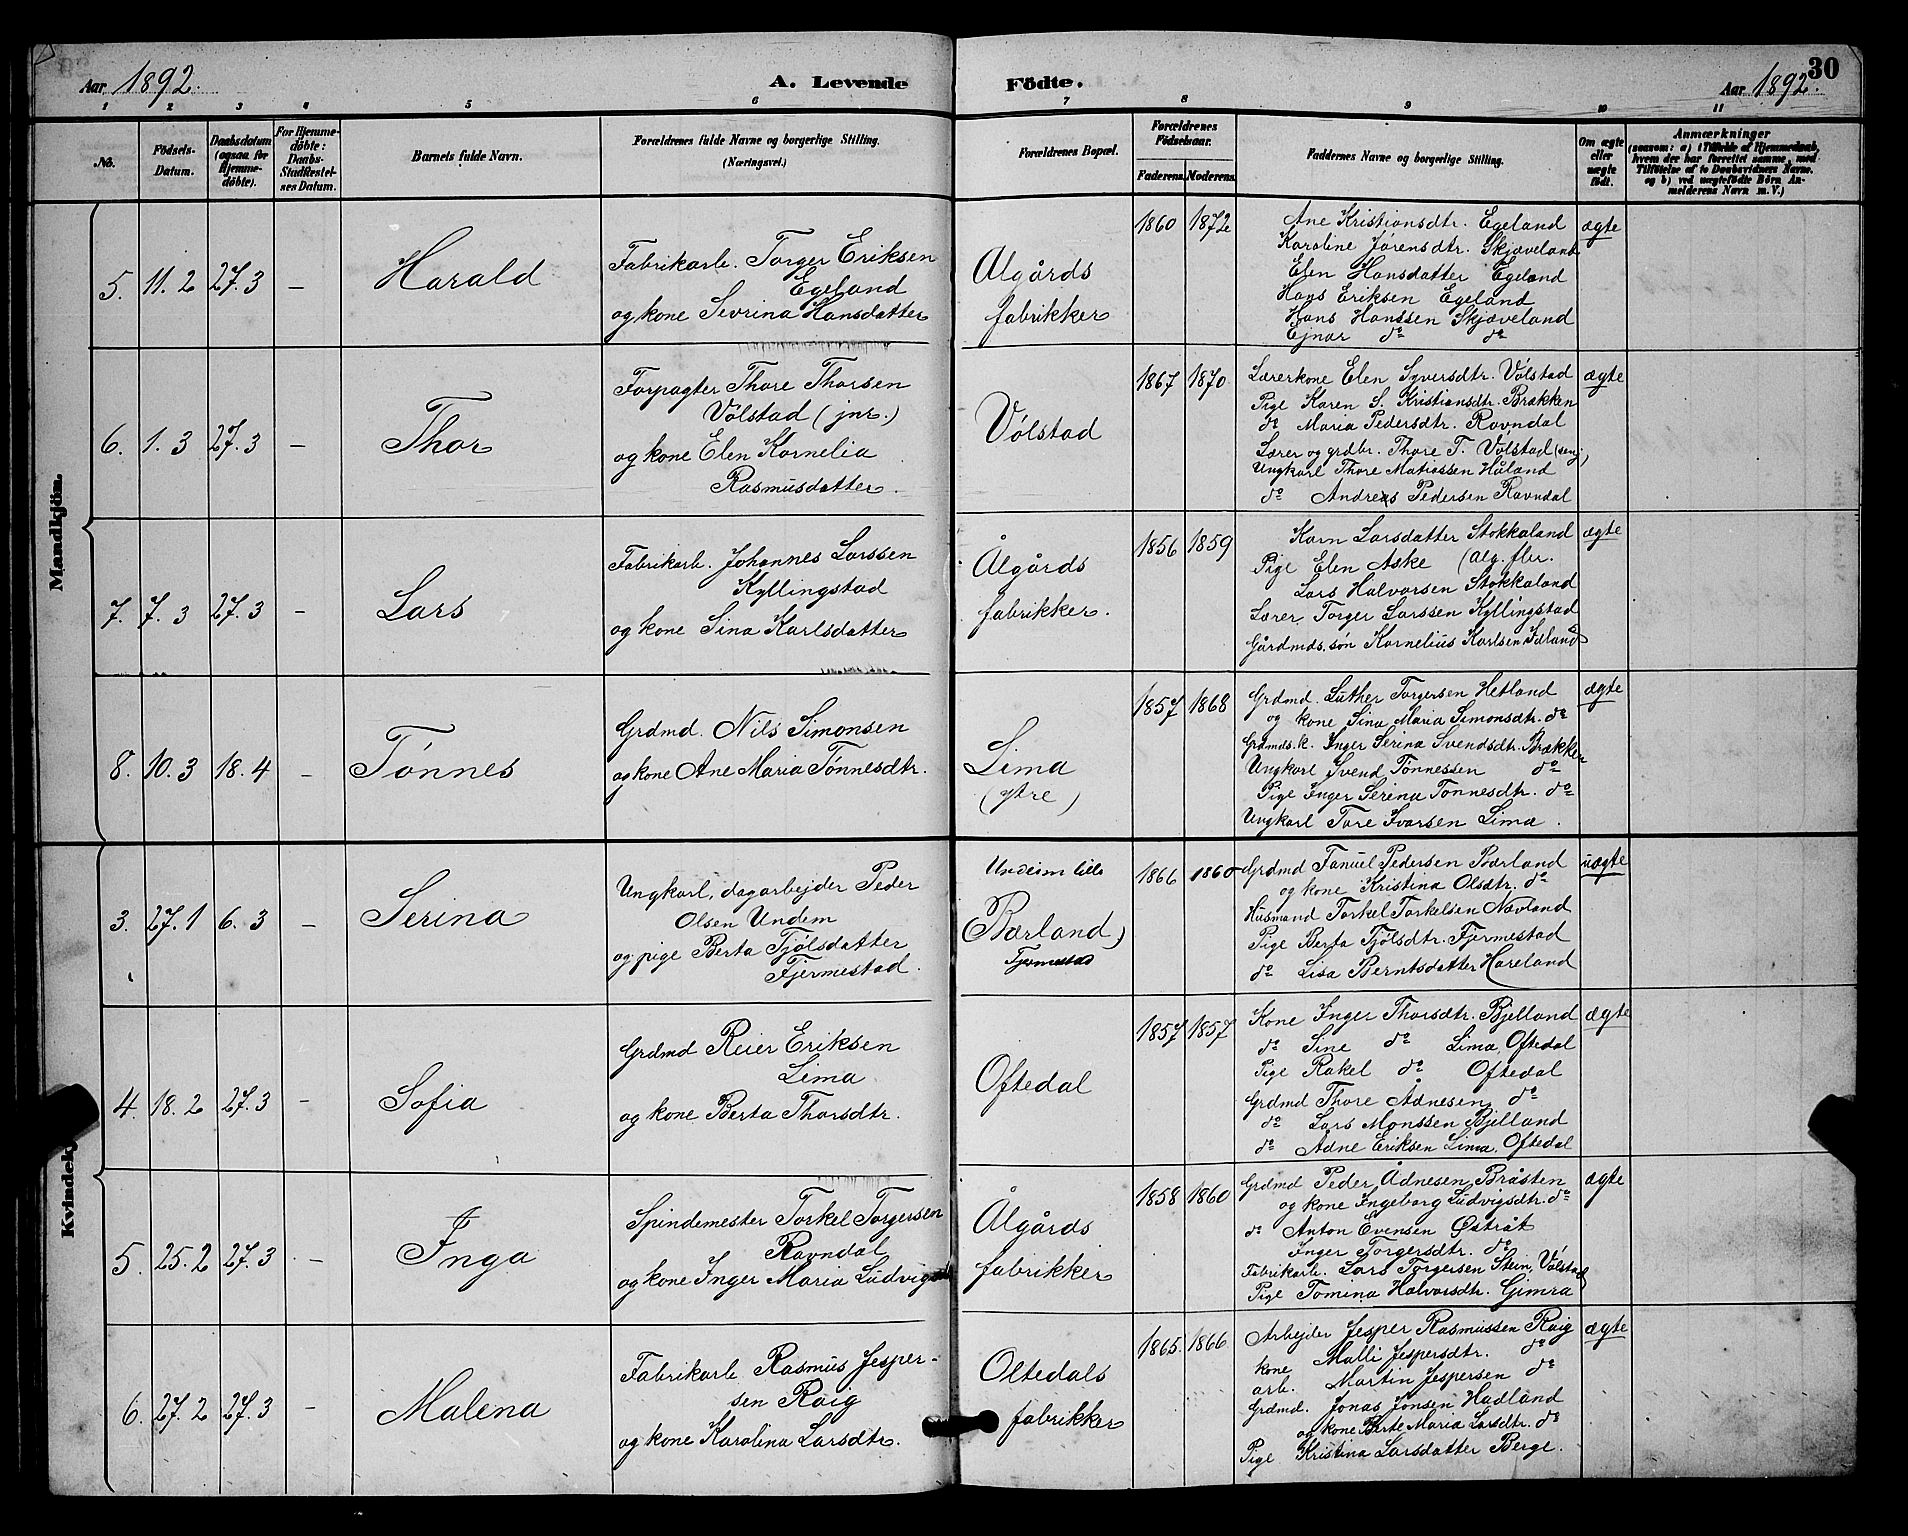 30
Aar 1892.
A. Levende Födte.
Aar 1892.
1 2 3 4 5 6 7 8 9 10 11
No.
Födsels-
Datum.
Daabsdatum
(ogsaa for
Hjemme-
döbte).
For Hjemme-
döbte:
Daabs-
Stadfæstel-
ses Datum.
Barnets fulde Navn.
Forældrenes fulde Navne og borgerlige Stilling.
(Næringsvei.)
Forældrenes Bopæl.
Forældrenes
Födselsaar.
Faderens. Moderens.
Faddernes Navne og borgerlige Stilling.
Om ægte
eller
uægte
födt.
Anmærkninger
(saasom: a) Tilfælde af Hjemmedaab,
hvem der har forrettet samme, med
Tilföielse af to Daabsvidners Navne.
og b) ved uægtefödte Börn An-
melderens Navn m. V.)
Mandkjön.
5. 11.2 27.3 – Harald
Fabrikarb. Torger Eriksen
Egeland
og kone Sevrina Hansdatter
Algårds
fabrikker
1860 1872
Ane Kristiansdtr. Egeland
Karoline Jørensdtr. Skjæveland
Elen Hansdatter Egeland
Hans Eriksen Egeland
Hans Hanssen Skjæveland
Ejnar do do
ægte
6. 1.3 27.3 – Thor
Forpagter Thore Thorsen
Vølstad (jnr.)
og kone Elen Kornelia
Rasmusdatter.
Vølstad
1867 1870
Lærerkone Elen Syversdtr. Vølstad
Pige Karen S. Kristiansdtr. Brækken
do Maria Pedersdtr. Ravndal
Lærer og grdbr. Thore T. Vølstad (sen.)
Ungkarl Thore Matiassen Håland
do Andreas Pedersen Ravndal
ægte
7. 7.3 27.3 – Lars
Fabrikarb. Johannes Larssen
Kyllingstad
og kone Sina Karlsdatter
Ålgårds
fabrikker.
1856 1859
Karn Larsdatter Stokkaland
Pige Elen Aske (Alg. fbr.
Lars Halvorsen Stokkaland
Lærer Torger Larssen Kyllingstad
Gårdmds. søn Kornelius Karlsen Edland
ægte
8. 10.3 18.4 – Tønnes
Grdmd. Nils Simonsen
og kone Ane Maria Tønnesdtr.
Lima
(ytre)
1857 1868
Grdmd. Luther Torgersen Hetland
og kone Sina Maria Simonsdtr. do
Grdmds.k. Inger Serina Svendsdtr. Brække
Ungkarl Svend Tønnessen do
Pige Inger Serina Tønnesdtr. do
Ungkarl Tore Ivarsen Lima.
ægte
Kvindekj
3. 27.1 6.3 – Serina
Ungkarl, dagarbejder Peder
Olsen Undem
og pige Berta Tjølsdatter
Fjermestad.
Undeim lille
Bærland)
Fjermestad
1866 1860
Grdmd Fanuel Pedersen Bærland
og kone Kristina Olsdtr. do
Husmand Torkel Torkelsen Nevland
Pige Berta Tjølsdtr. Fjermestad
do Lisa Berntsdatter Hareland
uægte
4. 18.2 27.3 – Sofia
Grdmd Reier Eriksen
Lima
og kone Berta Thorsdtr.
Oftedal
1857 1857
Kone Inger Thorsdtr. Bjelland
do Sine do Lima, Oftedal
Pige Rakel do Oftedal
Grdmd Thore Ådnesen do
do Lars Monssen Bjelland
do Ådne Eriksen Lima, Oftedal
ægte
5. 25.2 27.3 – Inga
Spindemester Torkel Torgersen
Ravndal
og kone Inger Maria Ludvigsd
Ålgårds
fabrikker
1858 1860
Grdmd Peder Ådnesen Bråsten
og kone Ingeborg Ludvigsdtr. do
do Anton Evensen Østråt
Inger Torgersdtr. do
Fabrikarb. Lars Torgersen Stein, Vølstad
Pige Tomina Halvorsdtr. Gimra
ægte
6. 27.2 27.3 – Malena
Fabrikarb. Rasmus Jesper-
sen Raig
og kone Karolina Larsdtr.
Oltedals
fabrikker
1865. 1866
Arbejder Jesper Rasmussen Raig
kone Malli Jespersdtr. do
arb. Martin Jespersen do
Grdmd. Jonas Jonsen Hadland
og kone Berte Maria Larsdtr. do
Pige Kristina Larsdatter Berge.
ægte